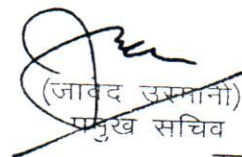 (जावेद उस्मानी)
प्रमुख सचिव